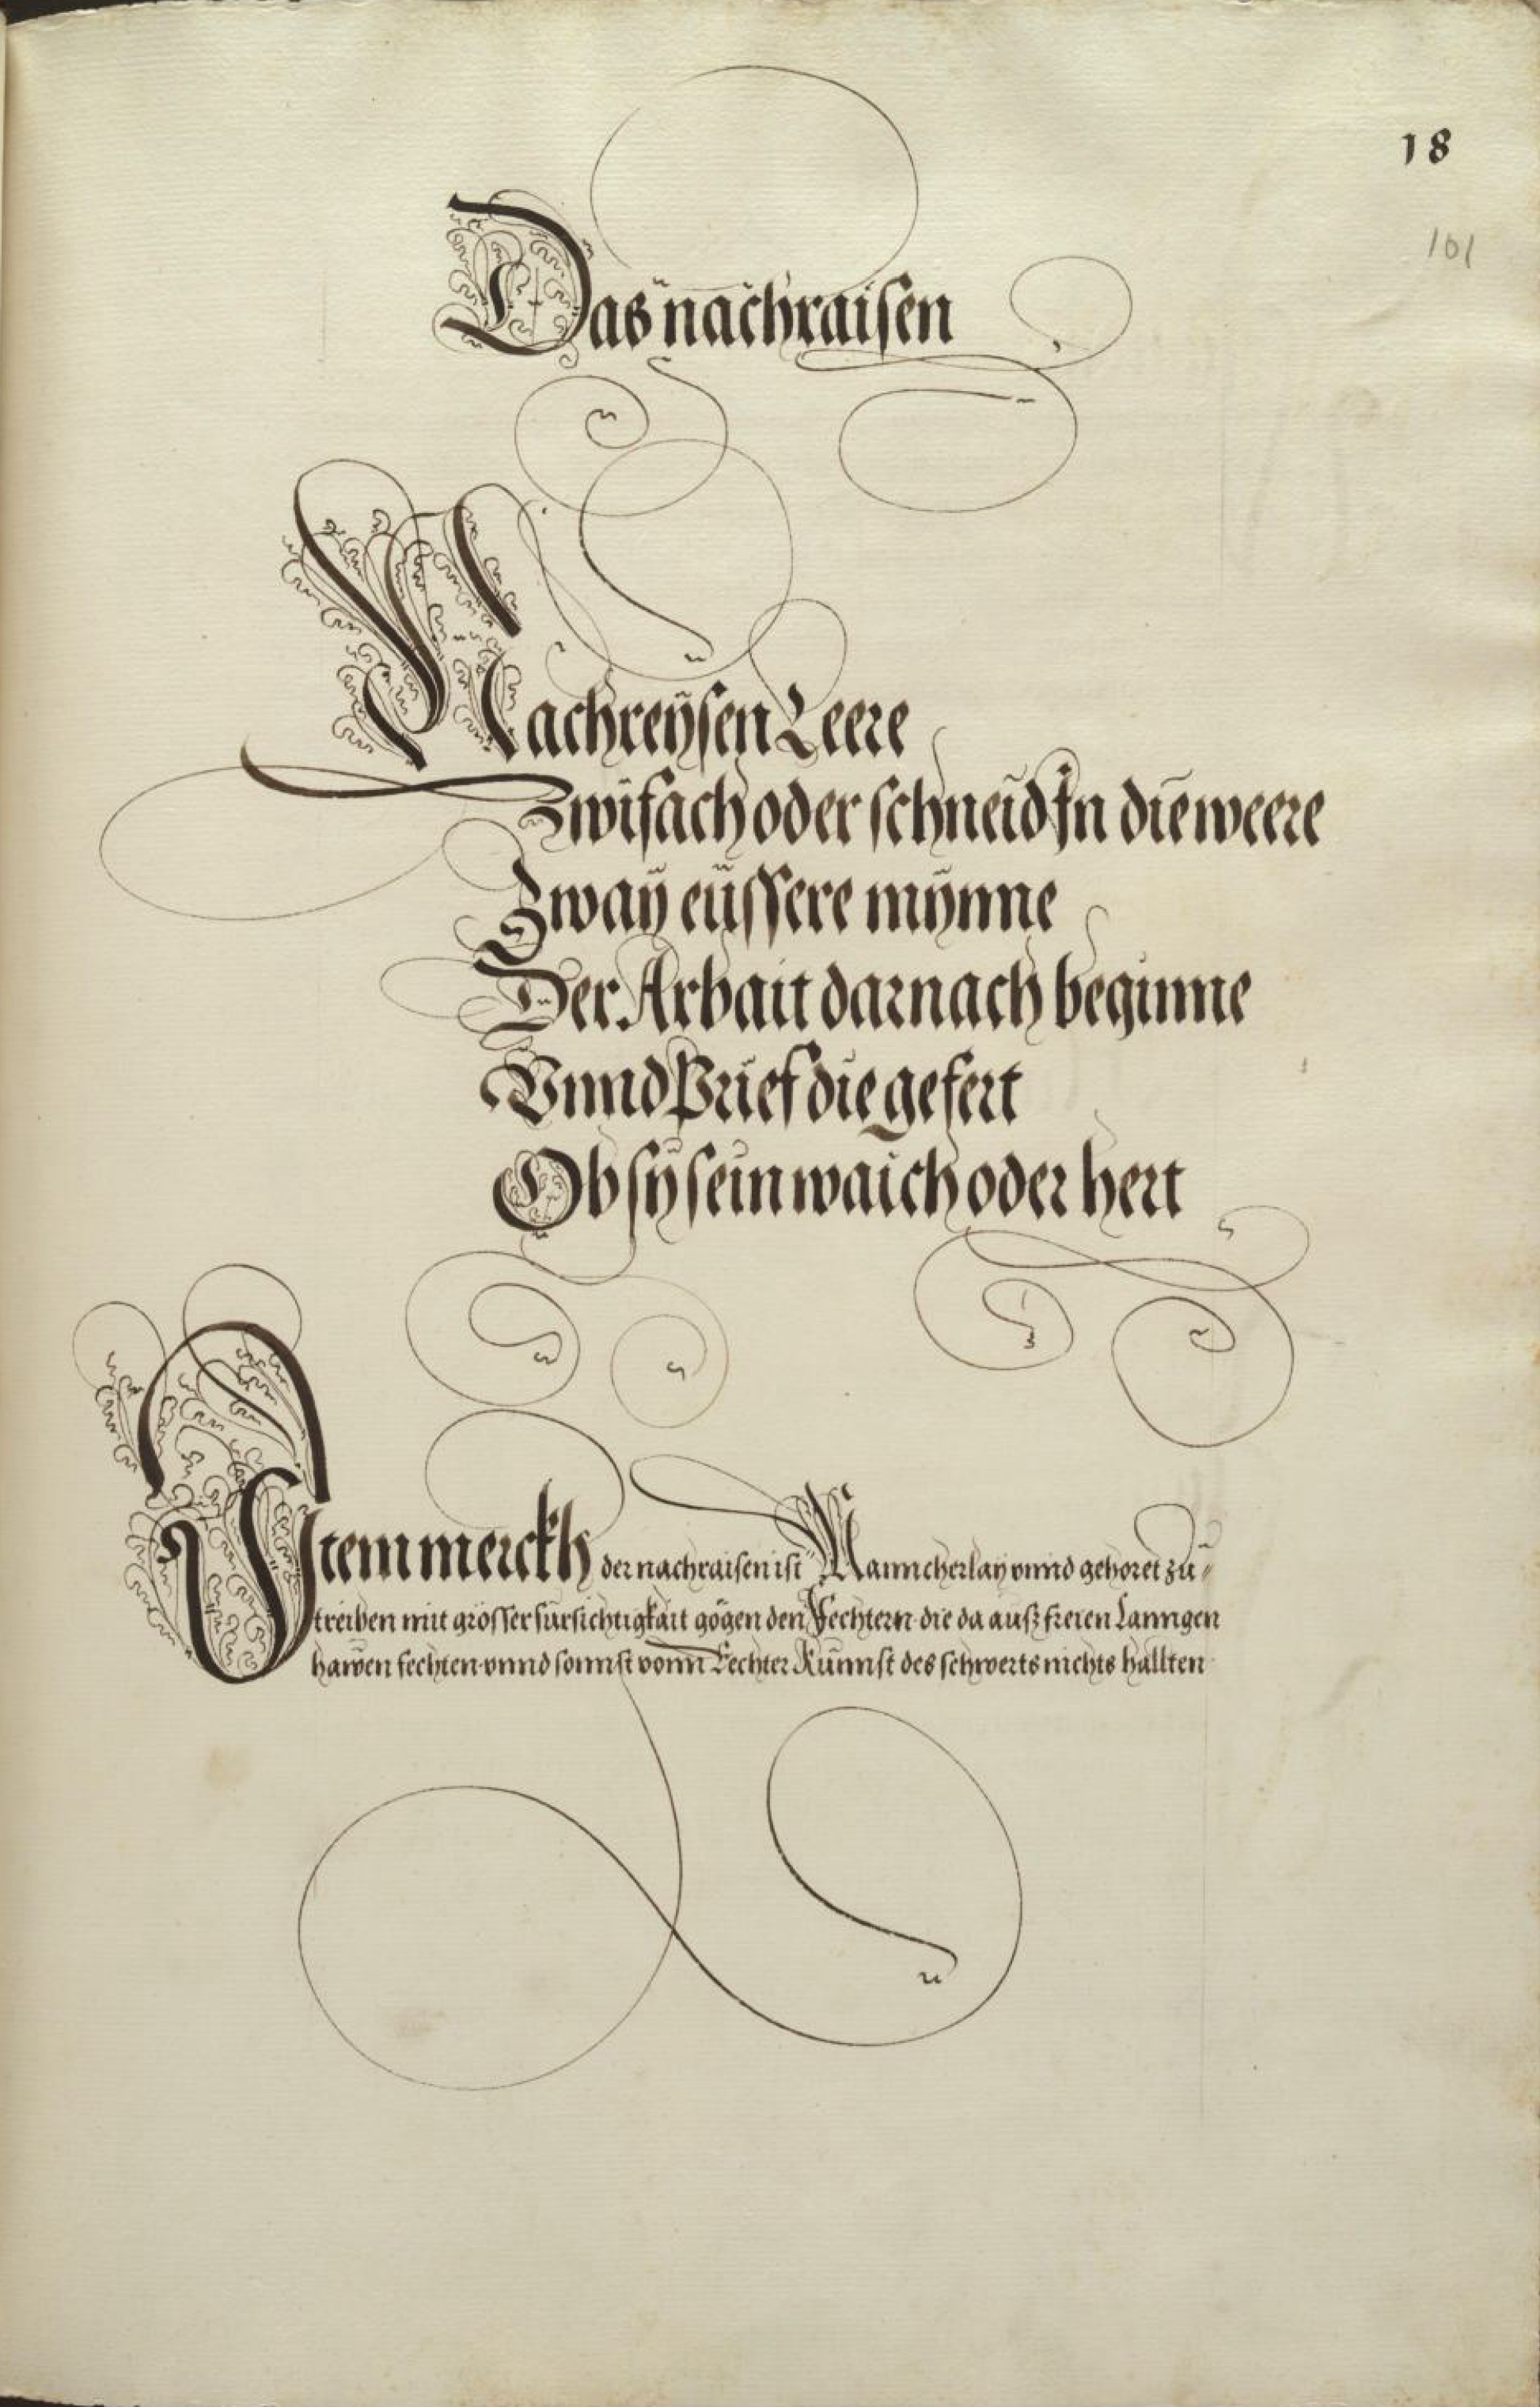 18
101
Das nachraisen
Nachreÿsen Leere
Zwifach oder schneid In die weere
Zwaÿ eüssere mÿnne
Der Arbait darnach beginne
Vnnd Prief die gefert
Ob sÿ sein waich oder hert
Item merckh der nachraisen ist Manncherlaÿ vnnd gehoret zu
treiben mit grösser fürsichtigkait gögen den Fechtern die da auß freien Lanngen
hawen fechten vnnd sonnst vonn Fechter Kunnst des schwerts nichts hallten